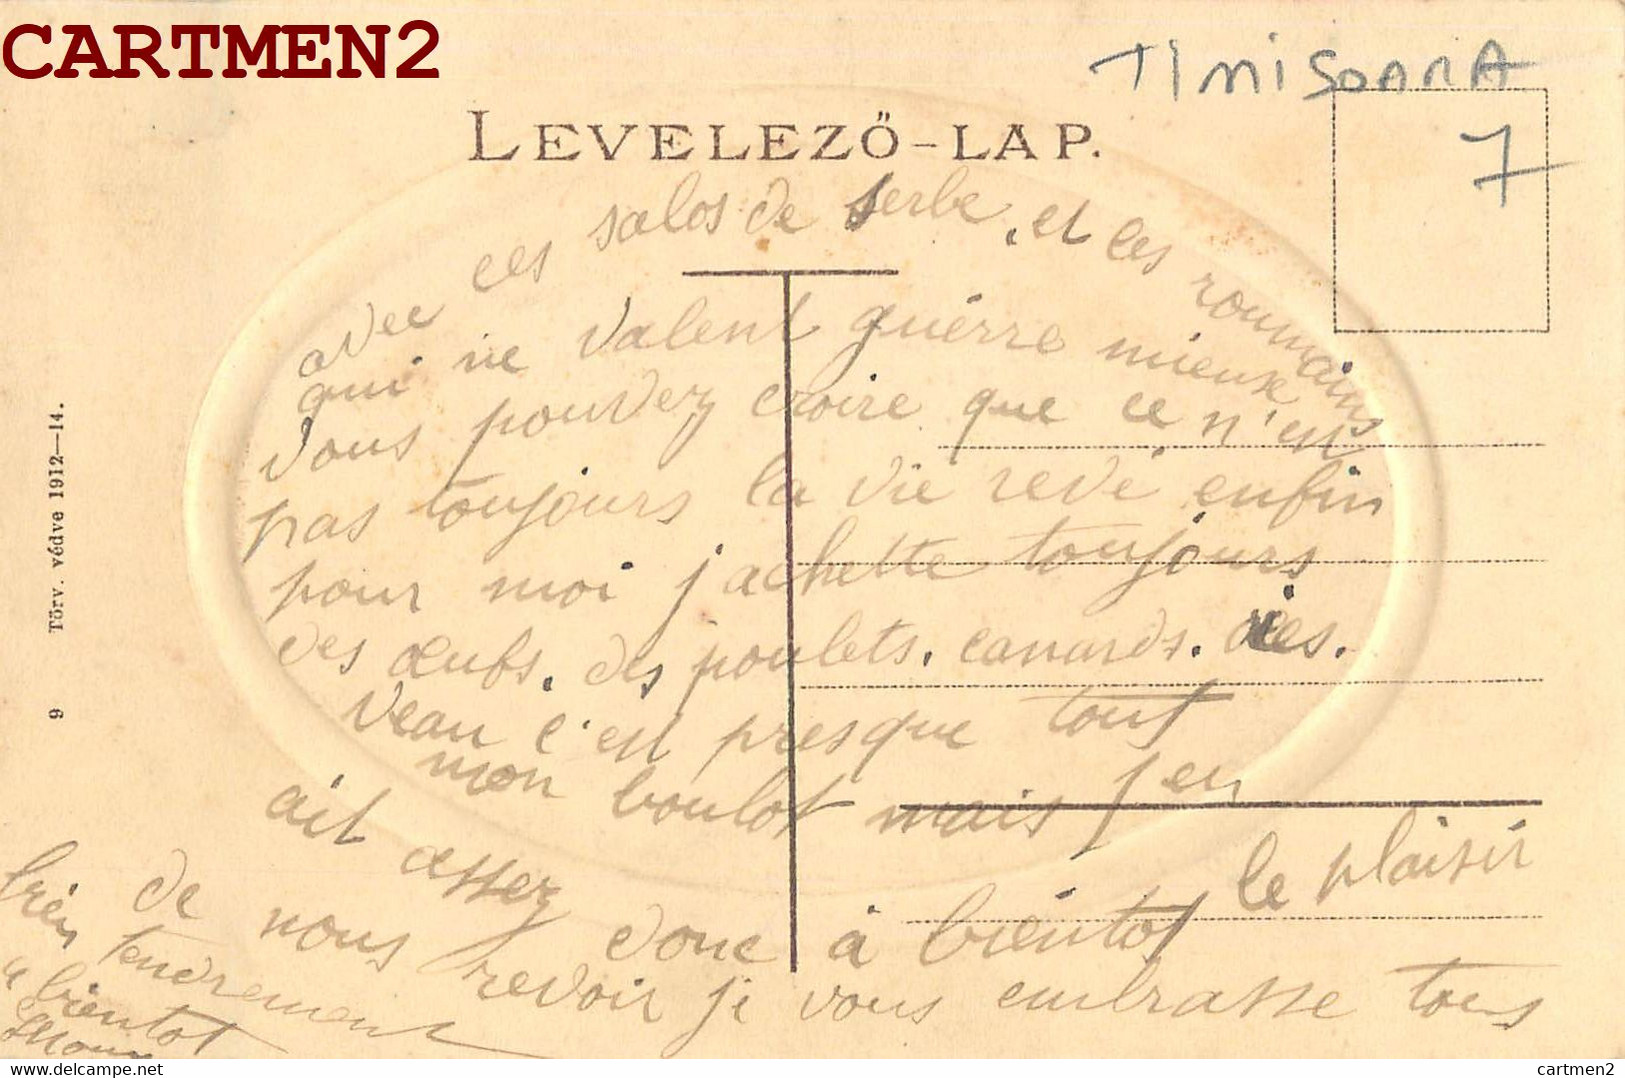 CARTMEN2
TIMISOARA
7
LEVELEZŐ-LAP.
avec ces salos de serbe, et les roumains
qui ne valent guérre mieux
vous pouvez croire que ce n'est
pas toujours la vie revé enfin
pour moi j'achette toujours
des œufs. des poulets. canards. oies.
veau c'est presque tout
mon boulot mais j'en
ait assez donc à bientot le plaisir
de nous revoir je vous embrasse tous
bien tendrement
a bientot
9 Törv. védve 1912—14.
cartmen2